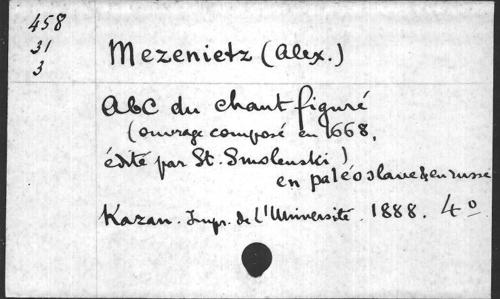 458
31
3
Mezenietz (Alex.)
ABC du chant figuré
(ouvrage composé en 1668,
édité par St. Smolenski)
en paléoslave & en russe
Kazan. Impr. de l'Université. 1888. 4º